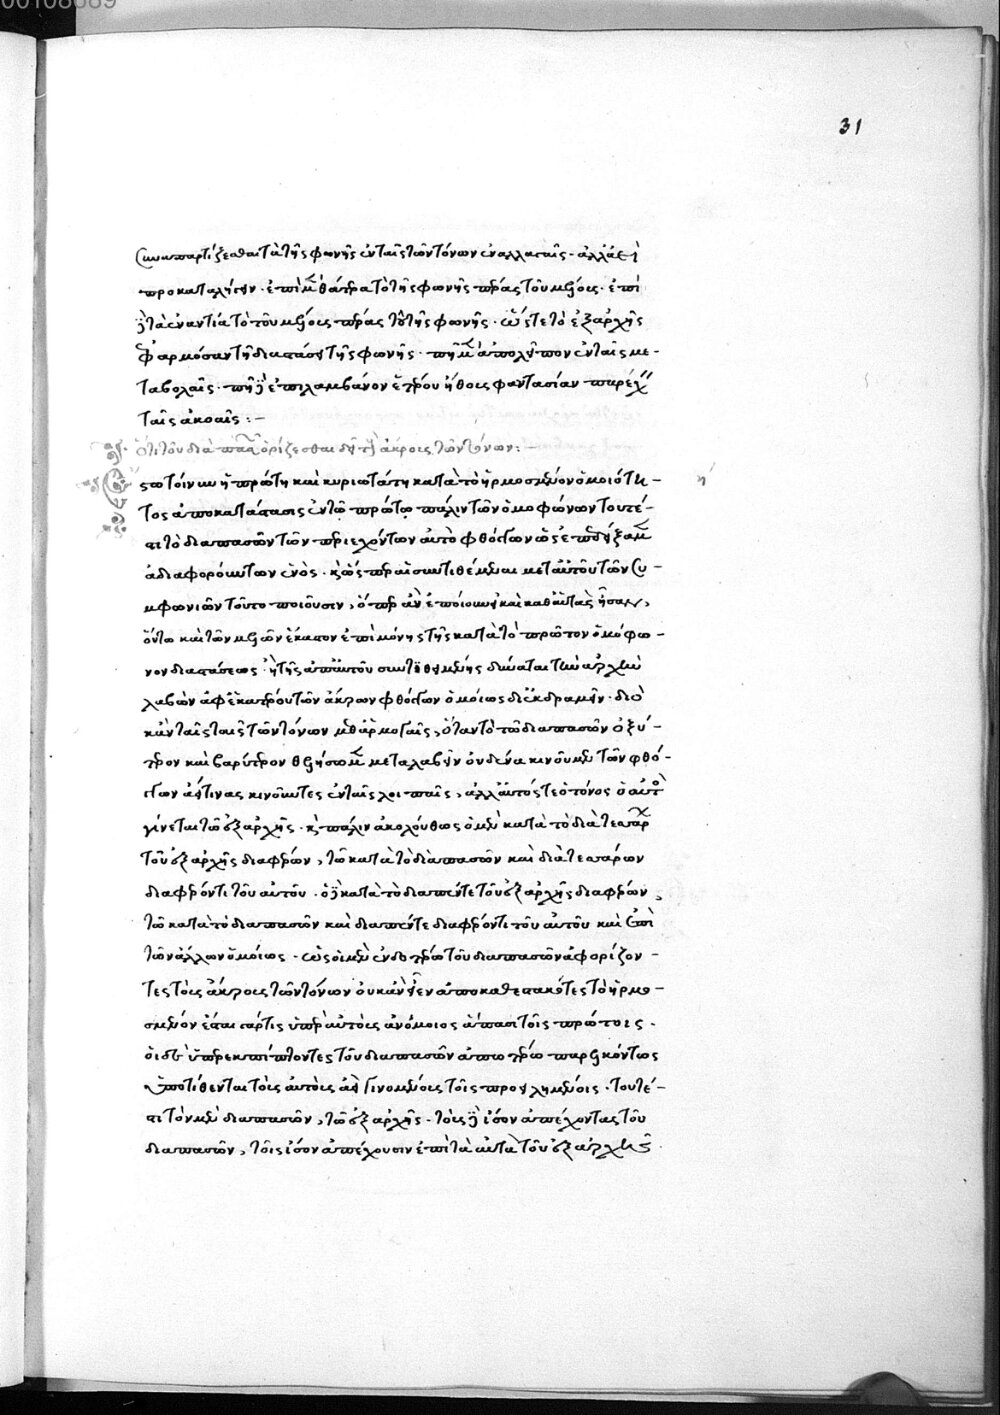 00108689
31
συναπαρτίζεσθαι τὰ τῆς φωνῆς ἐν ταῖς τῶν τόνων ἐναλλαγαῖς. ἀλλὰ ἀεὶ
προκαταλήγειν. ἐπὶ μὲν θάτερα τὸ τῆς φωνῆς πέρας τοῦ μέλους. ἐπὶ
δὲ τὰ ἐναντία τὸ τοῦ μέλους πέρας τοῦ τῆς φωνῆς. ὥστε τὸ ἐξαρχῆς
ἐφαρμόσαν τῇ διαστάσει τῆς φωνῆς. πῆ μὲν ἀπολεῖπον ἐν ταῖς με-
ταβολαῖς. πῆ δὲ ἐπιλαμβάνον ἑτέρου ἤθους φαντασίαν παρέχειν
ταῖς ἀκοαῖς :-
Ὅτι τοῦ διὰ πασῶν ὁρίζεσθαι δεῖ τοὺς ἄκρους τῶν τόνων :-
Ἔστω τοίνυν ἡ πρώτη καὶ κυριωτάτη κατὰ τὸ ἡρμοσμένον ὁμοιότη-
ή
τος ἀποκατάστασις ἐν τῷ πρώτῳ πάλιν τῶν ὁμοφώνων τουτέ-
στι τὸ διαπασῶν τῶν περιεχόντων αὐτὸ φθόγγων ὡς ἐπεδείξαμεν
ἀδιαφορούντων ἑνός. καὶ ὡσπεραὶ συντιθέμεναι μετ' αὐτοῦ τῶν συ-
μφωνιῶν τοῦτο ποιοῦσιν, ὅπερ ἂν ἐποίουν καὶ καθ' αὑτὰς ἦσαν,
οὕτω καὶ τῶν μελῶν ἕκαστον ἐπὶ μόνης τῆς κατὰ τὸ πρῶτον ὁμόφω-
νον διαστάσεως. ἢ τῆς ἀπ' αὐτοῦ συντιθεμένης δύναται τὴν ἀρχὴν
λαβὼν ἀφ' ἑκατέρου τῶν ἄκρων φθόγγων ὁμοίως διεκδραμεῖν. διὸ
κἂν ταῖς ταῖς τῶν τόνων μεθαρμογαῖς, ὅταν τὸ τῷ διαπασῶν ὀξύ-
τερον καὶ βαρύτερον θελήσωμεν μεταλαβεῖν οὐδένα κινοῦμεν τῶν φθό-
γγων ἀεί τινας κινοῦντες ἐν ταῖς λοιπαῖς, ἀλλ' αὐτός τε ὁ τόνος ὁ αὐτὸς
γίνεται τῷ ἐξαρχῆς. καὶ πάλιν ἀκολούθως ὁ μὲν κατὰ τὸ διὰ τεσσάρων
τοῦ ἐξαρχῆς διαφέρων, τῷ κατὰ τὸ διαπασῶν καὶ διὰ τεσσάρων
διαφέροντι τοῦ αὐτοῦ. ὁ δὲ κατὰ τὸ διαπέντε τοῦ ἐξαρχῆς διαφέρων,
τῷ κατὰ τὸ διαπασῶν καὶ διαπέντε διαφέροντι τοῦ αὐτοῦ καὶ ἐπὶ
τῶν ἄλλων ὁμοίως. ὡς οἱ μὲν ἐνδοτέρω τοῦ διαπασῶν ἀφορίζον-
τες τοὺς ἄκρους τῶν τόνων οὐκ ἂν εἶεν ἀποκαθεστακότες τὸ ἡρμο-
σμένον ἔσται γάρτις ὑπὲρ αὐτοὺς ἀνόμοιος ἅπασι τοῖς πρώτοις.
οἱ δ' ὑπερεκπίπτοντες τοῦ διαπασῶν ἀπωτέρω παρέλκόντως
ὑποτίθενται τοὺς αὐτοὺς ἀεὶ γινομένους τοῖς προειλημμένοις. τουτέ-
στι τὸν μὲν διαπασῶν, τῷ ἐξαρχῆς. τοὺς δὲ ἴσον ἀπέχοντας τοῦ
διαπασῶν, τοῖς ἴσον ἀπέχουσιν ἐπὶ τὰ αὐτὰ τοῦ ἐξαρχῆς.